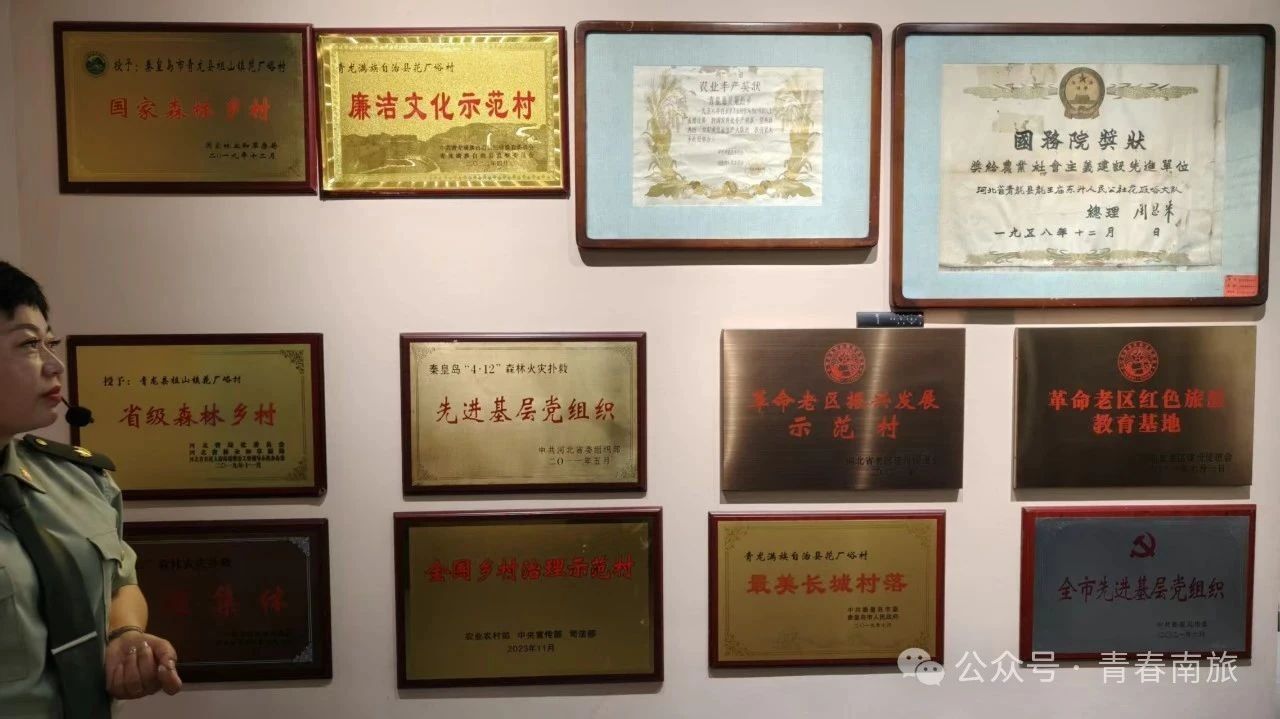 授予：秦皇岛市青龙县祖山镇花厂峪村
国家森林乡村
国家林业和草原局
二〇一九年十二月
青龙满族自治县花厂峪村
廉洁文化示范村
农业丰产奖状
國務院獎狀
奖给農業社會主義建設先進單位
河北省青龍县龍王庙东升人民公社花厰峪大队
總理 周恩来
一九五八年十二月 日
授予：青龙县祖山镇花厂峪村
省级森林乡村
二〇一九年十一月
秦皇岛“4·12”森林火灾扑救
先进基层党组织
中共河北省委组织部
二〇一一年五月
革命老区振兴发展
示范村
河北省老区建设促进会
革命老区红色旅游
教育基地
森林火灾扑救
集体
全国乡村治理示范村
农业农村部 中央宣传部 司法部
2023年11月
青龙满族自治县花厂峪村
最美长城村落
中共秦皇岛市委
秦皇岛市人民政府
二〇一九年七月
全市先进基层党组织
中共秦皇岛市委
公众号·青春南旅